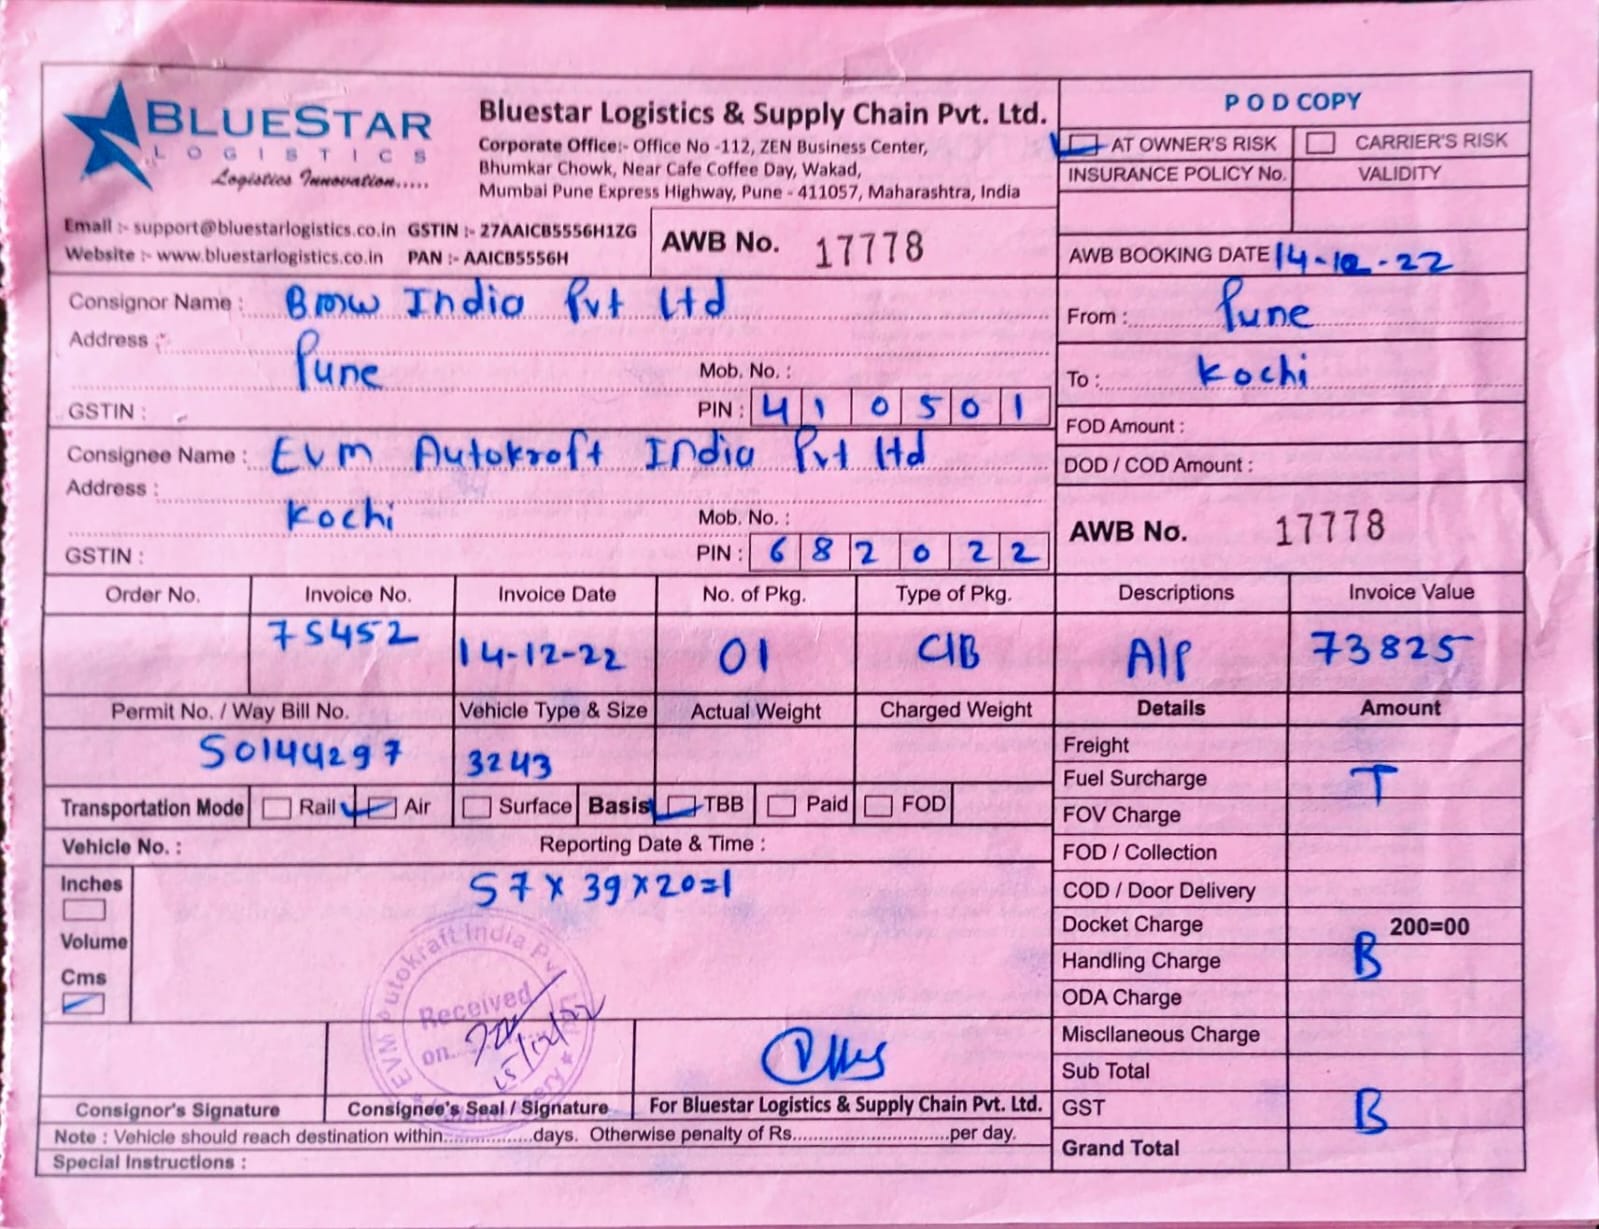 BLUESTAR
LOGISTICS
Logistics Innovation.....
Bluestar Logistics & Supply Chain Pvt. Ltd.
Corporate Office:- Office No -112, ZEN Business Center,
Bhumkar Chowk, Near Cafe Coffee Day, Wakad,
Mumbai Pune Express Highway, Pune - 411057, Maharashtra, India
Email :- support@bluestarlogistics.co.in GSTIN :- 27AAICB5556H1ZG
Website :- www.bluestarlogistics.co.in PAN :- AAICB5556H
AWB No. 17778
POD COPY
AT OWNER'S RISK CARRIER'S RISK
INSURANCE POLICY No. VALIDITY
AWB BOOKING DATE 14-12-22
From : Pune
To : Kochi
FOD Amount :
DOD / COD Amount :
AWB No. 17778
Consignor Name : Bmw India Pvt Ltd
Address :
Pune Mob. No. :
GSTIN : PIN : 410501
Consignee Name : EVM Autokroft India Pvt Ltd
Address :
Kochi Mob. No. :
GSTIN : PIN : 682022
Order No. Invoice No. Invoice Date No. of Pkg. Type of Pkg. Descriptions Invoice Value
75452 14-12-22 01 C/B A/P 73825
Permit No. / Way Bill No. Vehicle Type & Size Actual Weight Charged Weight Details Amount
50144297 3243
Transportation Mode Rail Air Surface Basis TBB Paid FOD
Vehicle No. : Reporting Date & Time :
Inches
Volume
Cms
57 x 39 x 20=1
Freight
Fuel Surcharge T
FOV Charge
FOD / Collection
COD / Door Delivery
Docket Charge 200=00
Handling Charge B
ODA Charge
Miscllaneous Charge
Sub Total
GST B
Grand Total
EVM Autokraft India Pvt
Received
on 15/12/22
Consignor's Signature Consignee's Seal / Signature For Bluestar Logistics & Supply Chain Pvt. Ltd.
Note : Vehicle should reach destination within.................days. Otherwise penalty of Rs.............................per day.
Special Instructions :